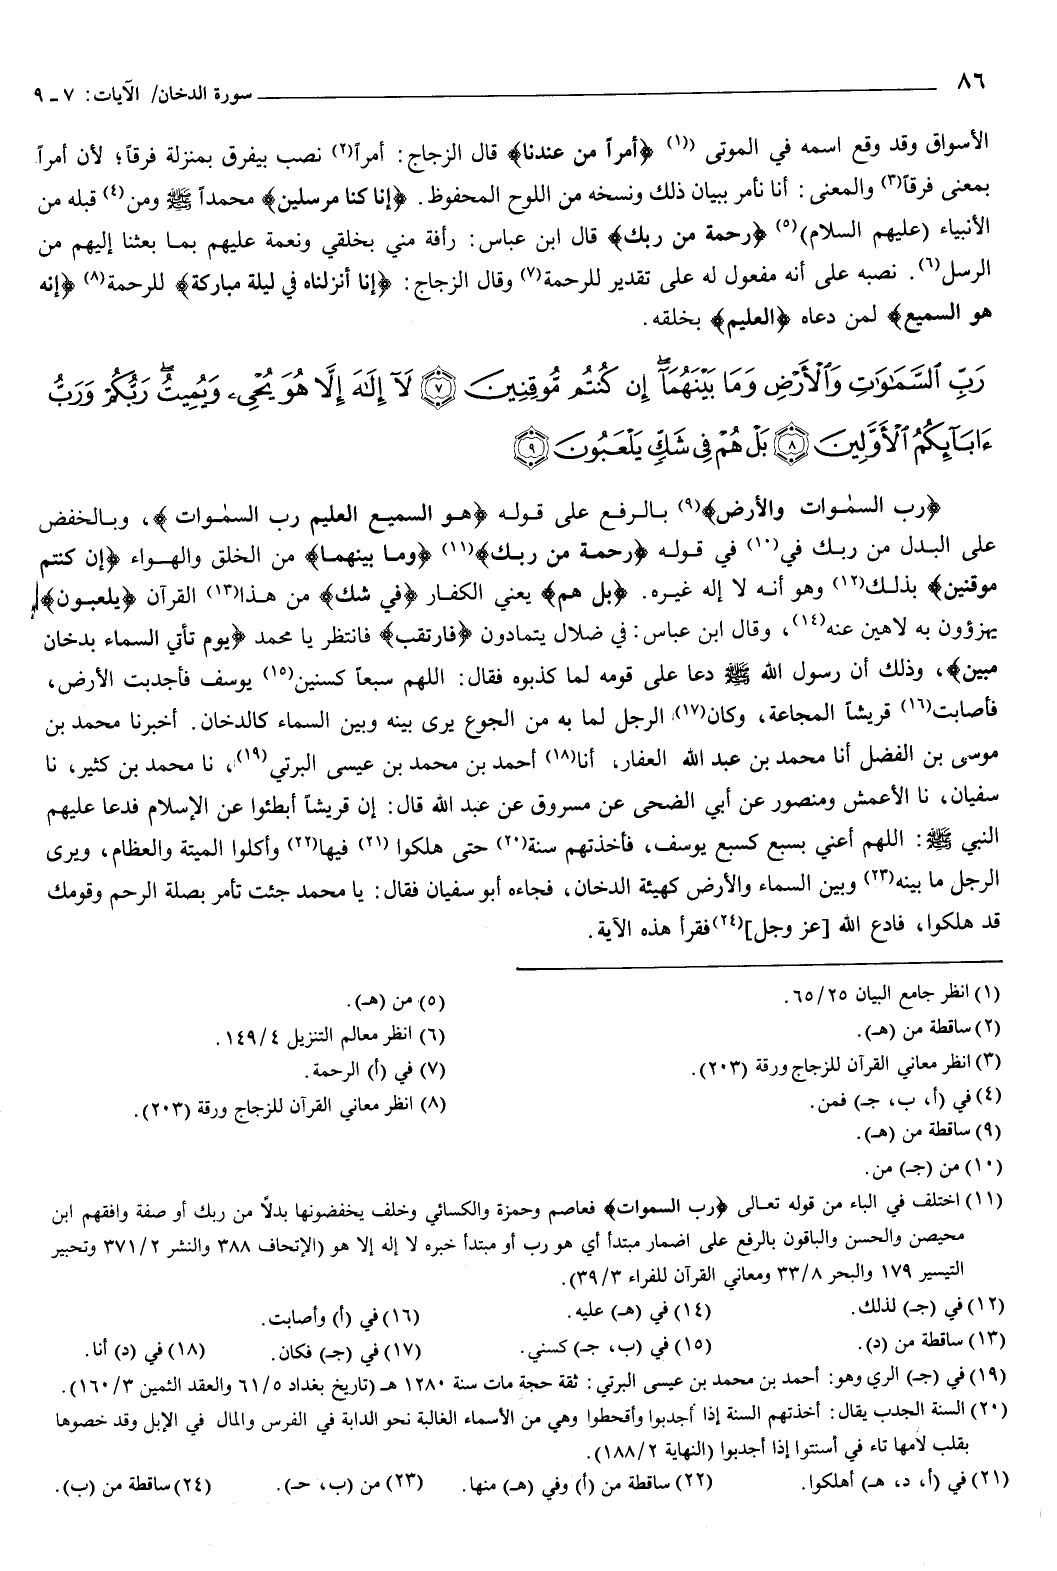 ٨٦ سورة الدخان/ الآيات: ٧ ـ ٩
الأسواق وقد وقع اسمه في الموتى (١) ﴿أمراً من عندنا﴾ قال الزجاج: أمراً(٢) نصب بيفرق بمنزلة فرقاً؛ لأن أمراً
بمعنى فرقاً(٣) والمعنى: أنا نأمر ببيان ذلك ونسخه من اللوح المحفوظ. ﴿إنا كنا مرسلين﴾ محمداً ﷺ ومن(٤) قبله من
الأنبياء (عليهم السلام)(٥) ﴿رحمة من ربك﴾ قال ابن عباس: رأفة مني بخلقي ونعمة عليهم بمـا بعثنا إليهم من
الرسل(٦). نصبه على أنه مفعول له على تقدير للرحمة(٧) وقال الزجاج: ﴿إنا أنزلناه في ليلة مباركة﴾ للرحمة(٨) ﴿إنه
هو السميع﴾ لمن دعاه ﴿العليم﴾ بخلقه.
رَبِّ ٱلسَّمَٰوَٰتِ وَٱلْأَرْضِ وَمَا بَيْنَهُمَآۖ إِن كُنتُم مُّوقِنِينَ ۝٧ لَآ إِلَٰهَ إِلَّا هُوَ يُحْىِۦ وَيُمِيتُۖ رَبُّكُمْ وَرَبُّ
ءَابَآئِكُمُ ٱلْأَوَّلِينَ ۝٨ بَلْ هُمْ فِى شَكٍّ يَلْعَبُونَ ۝٩
﴿رب السمٰوات والأرض﴾(٩) بـالـرفـع على قـولـه ﴿هـو السميـع العليم رب السمٰـوات﴾، وبـالخفض
على البـدل من ربـك في(١٠) في قـولـه ﴿رحمـة من ربـك﴾(١١) ﴿ومـا بينهمـا﴾ من الخلق والهـواء ﴿إن كنتم
موقنين﴾ بذلـك(١٢) وهو أنـه لا إله غيـره. ﴿بل هم﴾ يعني الكفـار ﴿في شك﴾ من هـذا(١٣) القرآن ﴿يلعبـون﴾
يهزؤون به لاهين عنه(١٤)، وقال ابن عباس: في ضلال يتمادون ﴿فارتقب﴾ فانتظر يا محمد ﴿يوم تأتي السماء بدخان
مبين﴾، وذلك أن رسول الله ﷺ دعا على قومه لما كذبوه فقال: اللهم سبعاً كسنين(١٥) يوسف فأجدبت الأرض،
فأصابت(١٦) قريشاً المجاعة، وكان(١٧) الرجل لما به من الجوع يرى بينه وبين السماء كالدخان. أخبرنا محمد بن
موسى بن الفضل أنا محمد بن عبد الله العفار، أنا(١٨) أحمد بن محمد بن عيسى البرتي(١٩)، نا محمد بن كثير، نا
سفيان، نا الأعمش ومنصور عن أبي الضحى عن مسروق عن عبد الله قال: إن قريشاً أبطئوا عن الإسلام فدعا عليهم
النبي ﷺ: اللهم أعني بسبع كسبع يوسف، فأخذتهم سنة(٢٠) حتى هلكوا (٢١) فيها(٢٢) وأكلوا الميتة والعظام، ويرى
الرجل ما بينه(٢٣) وبين السماء والأرض كهيئة الدخان، فجاءه أبو سفيان فقال: يا محمد جئت تأمر بصلة الرحم وقومك
قد هلكوا، فادع الله [عز وجل](٢٤) فقرأ هذه الآية.
(١) انظر جامع البيان ٦٥/٢٥.
(٢) ساقطة من (هـ).
(٣) انظر معاني القرآن للزجاج ورقة (٢٠٣).
(٤) في (أ، ب، جـ) فمن.
(٥) من (هـ).
(٦) انظر معالم التنزيل ١٤٩/٤.
(٧) في (أ) الرحمة.
(٨) انظر معاني القرآن للزجاج ورقة (٢٠٣).
(٩) ساقطة من (هـ).
(١٠) من (جـ) من.
(١١) اختلف في الباء من قوله تعـالى ﴿رب السموات﴾ فعاصم وحمزة والكسائي وخلف يخفضونها بدلاً من ربك أو صفة وافقهم ابن
محيصن والحسن والباقون بالرفع على اضمار مبتدأ أي هو رب أو مبتدأ خبره لا إله إلا هو (الإتحاف ٣٨٨ والنشر ٣٧١/٢ وتحبير
التيسير ١٧٩ والبحر ٣٣/٨ ومعاني القرآن للفراء ٣٩/٣).
(١٢) في (جـ) لذلك. (١٤) في (هـ) عليه. (١٦) في (أ) وأصابت.
(١٣) ساقطة من (د). (١٥) في (ب، جـ) كسني. (١٧) في (جـ) فكان. (١٨) في (د) أنا.
(١٩) في (جـ) الري وهو: أحمد بن محمد بن عيسى البرتي: ثقة حجة مات سنة ١٢٨٠ هـ (تاريخ بغداد ٦١/٥ والعقد الثمين ١٦٠/٣).
(٢٠) السنة الجدب يقال: أخذتهم السنة إذا أجدبوا وأقحطوا وهي من الأسماء الغالبة نحو الدابة في الفرس والمال في الإبل وقد خصوها
بقلب لامها تاء في أسنتوا إذا أجدبوا (النهاية ١٨٨/٢).
(٢١) في (أ، د، هـ) أهلكوا. (٢٢) ساقطة من (أ) وفي (هـ) منها. (٢٣) من (ب، حـ). (٢٤) ساقطة من (ب).